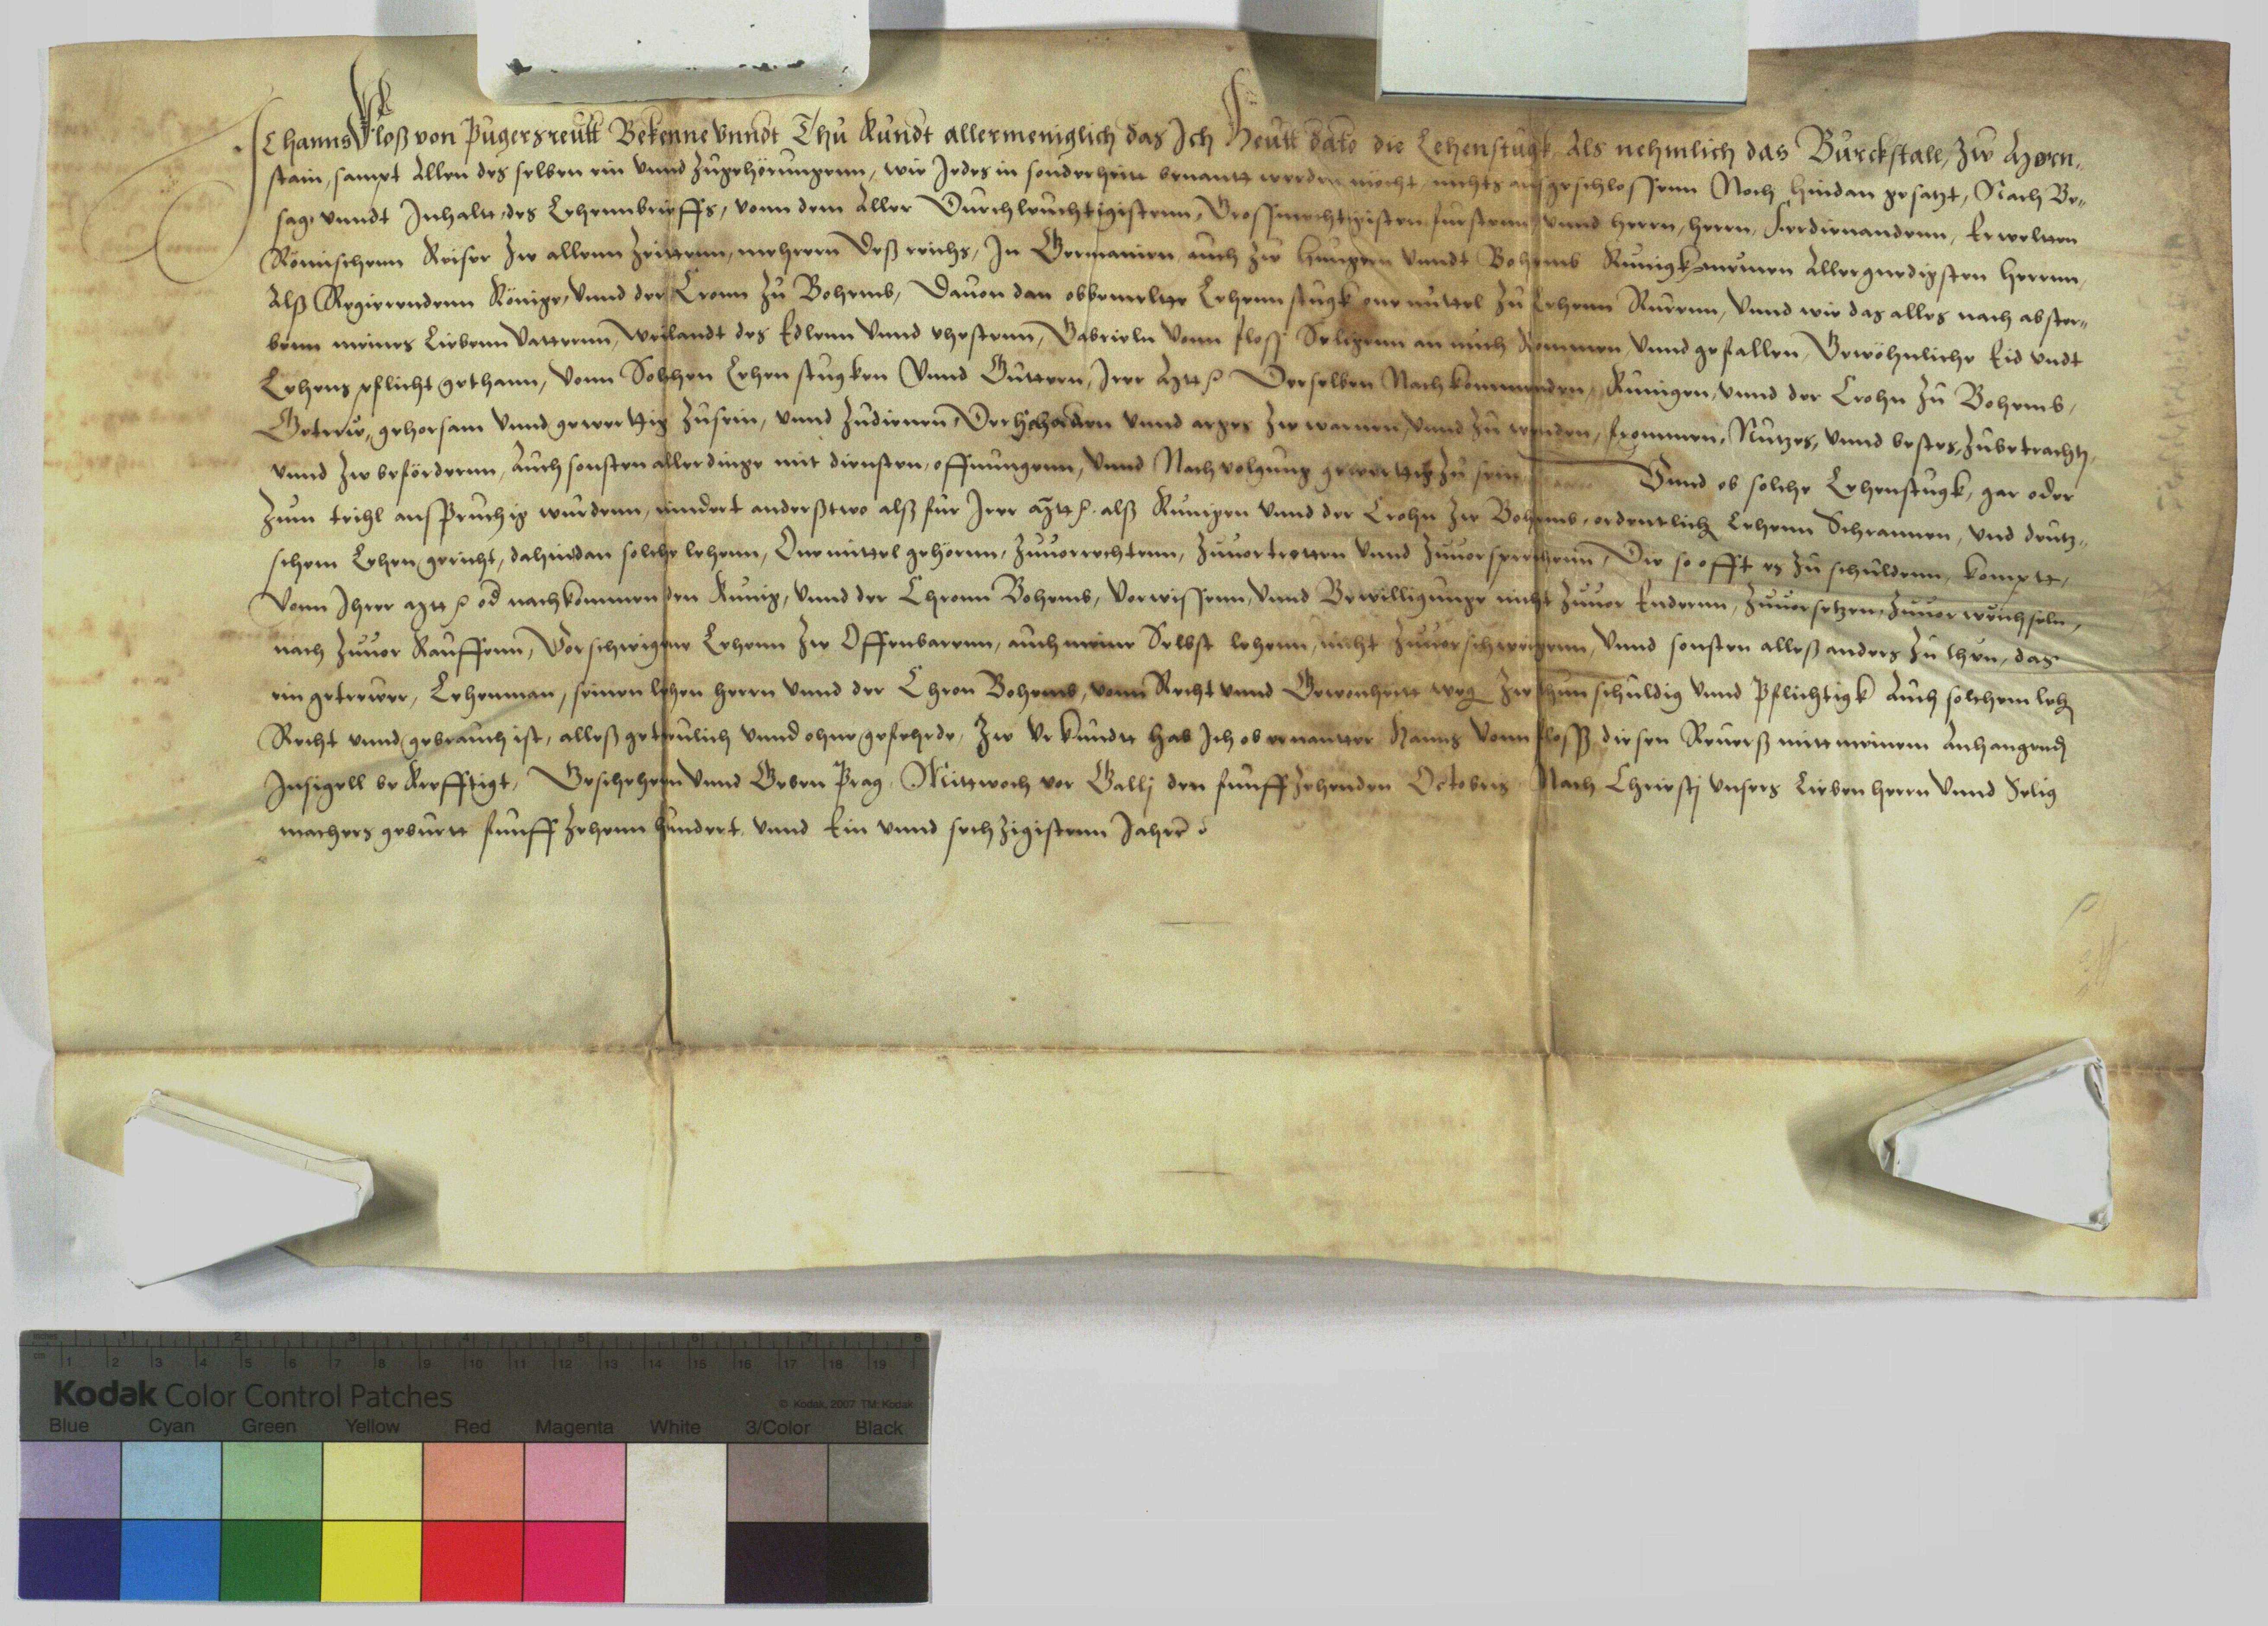 Ich hanns Floß von Pugersreutt Bekenne vnndt Thu Kundt allermeniglich das Ich Heutt dato die Lehenstugk, Als nehmlich das Burckstall, Zw
stain, sampt Allen des selben ein vnnd Zugehörungenn, wie Jedes in sonderheitt benantt werden möcht, nichts ausgeschlossenn Noch hindan gesatzt, Nach Be„
sag, vnndt Inhaltt, des Lehennbrieffs, vonn dem Aller Durchleuchtigistenn, Grossmechtigisten furstenn, vnnd herrn, herrn, Ferdienandenn, Erweltten
Römischenn Keiser Zw allenn Zeittenn, mehrern Deß reichs, In Germanien, auch Zw hungern vnndt Bohemb Kunigk, meinen Allergnedigsten herrnn,
Alß Regierendenn Könige, vnnd der Cronn Zu Bohemb, Dauon dan obbemeltte Lehennstugk one mittel Zu Lehenn Rurenn, vnnd wie das alles nach abster„
benn meines Liebenn Vatternn, weilandt des Edlenn vnnd vhestenn, Gabrieln vonn floss Seligenn an mich Kommen, vnnd gefallen, Gewöhnliche Eid vndt
Lehens pflicht gethann, vonn Solchen Lehenstugken vnnd Guttern, Irer Derselben Nachkommenden, Kunigen, vnnd der Crohn Zu Bohemb,
Getrew, gehorsam vnnd gewerttig Zusein, vnnd Zudienen, Der schaden vnnd arges Zw warnen, vnnd Zu wenden, frommen, Nutzes, vnnd bestes, Zubetrachtn,
vnnd Zw befördernn, Auch sonsten allerdinge mit diensten, offnungenn, vnnd Nachvolgung gewerttig Zu sein Vnnd ob solche Lehenstugk, gar oder
Zum teihl anspruchig wurdenn, nindert anderßtwo alß für Irer alß Kunigen vnnd der Crohn Zw Bohemb, ordentlich Lehenn Schrannen, vnd deutz„
schem Lehen gericht, dahindan solche lehenn, One mittel gehörnn, Zuuorrechtenn, Zuuortretten vnnd Zuuorsprechenn, Die so offt es Zu schuldenn, komptt,
Vonn Ihrer od nachkommenden Kunig, vnnd der Chronn Bohemb, Vorwissenn, vnnd Bewilligunge nicht Zuuor Endernn, Zuuorsetzen, Zuuorweichseln,
nach Zuuor Kauffenn, Vorschwigene Lehenn Zw Offenbarenn, auch meine Selbst lehenn, nicht Zuuorschweigenn, vnnd sonsten alleß anders Zu thun, das
ein getrewer, Lehenman, seinen lehen herrn vnnd der Chron Bohemb, vonn Recht vnnd Gewonheitt weg Zw thun schuldig vnnd Pflichtigk Auch solchem leh
Recht vnnd gebrauch ist, alleß getreulich vnnd ohne geferde, Zw Vrkundtt hab Ich obbenantter Hanns vonn floss diesen Reuerß mitt meinem Anhangend
Insigell bekrefftigt, Geschehenn vnnd Geben Prag, Mittwoch vor Gallj den funffzehenden Octobris Nach Christj vnsers Lieben herrn vnnd Selig
machers geburtt funffzehenn hundert, vnnd Ein vnnd sechzigistenn Jahre
Kodak Color Control Patches
© Kodak, 2007 TM: Kodak
inches 1 2 3 4 5 6 7 8
cm 1 2 3 4 5 6 7 8 9 10 11 12 13 14 15 16 17 18 19
Blue Cyan Green Yellow Red Magenta White 3/Color Black